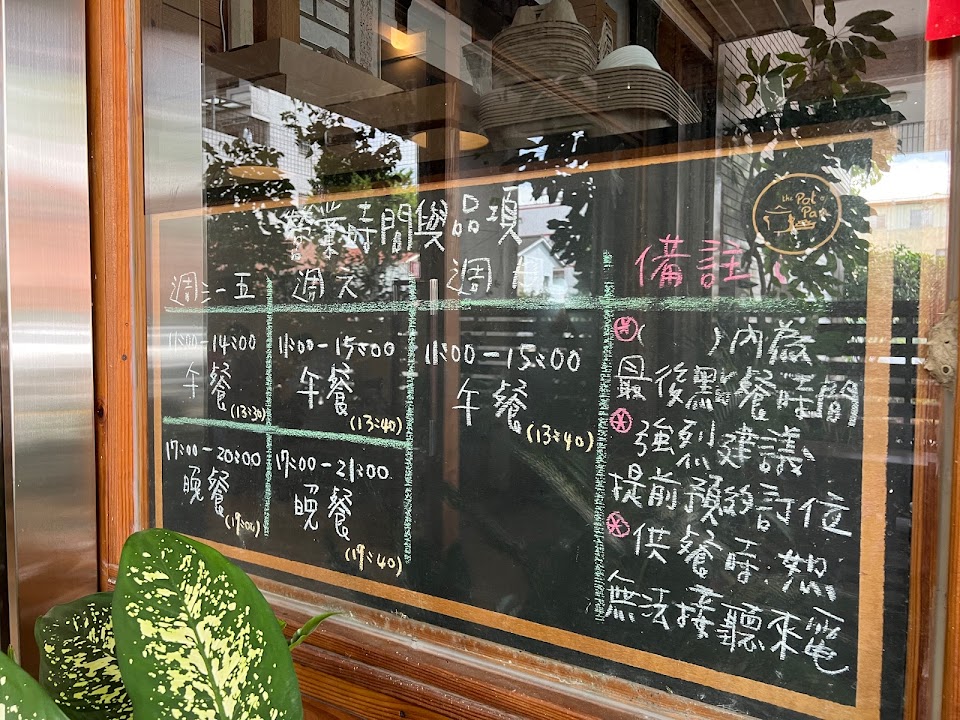 the
Pot
Pan
營業時間與品項
週三-五
週六
週日
備註
11:00-14:00
午餐
(13:30)
11:00-15:00
午餐
(13:40)
11:00-15:00
午餐
(13:40)
17:00-20:00
晚餐
17:00-21:00
晚餐
(19:40)
( )內為
最後點餐時間
強烈建議
提前預約訂位
供餐時,恕
無法接聽來電